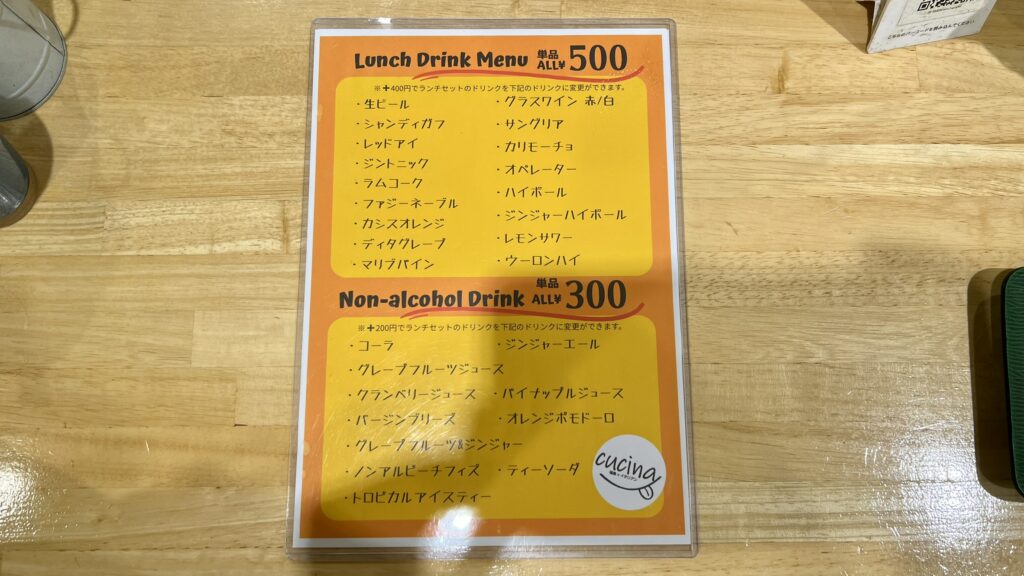 Lunch Drink Menu 単品 ALL¥ 500
※✚400円でランチセットのドリンクを下記のドリンクに変更ができます。
・生ビール
・シャンディガフ
・レッドアイ
・ジントニック
・ラムコーク
・ファジーネーブル
・カシスオレンジ
・ディタグレープ
・マリブパイン
・グラスワイン 赤/白
・サングリア
・カリモーチョ
・オペレーター
・ハイボール
・ジンジャーハイボール
・レモンサワー
・ウーロンハイ
Non-alcohol Drink 単品 ALL¥ 300
※✚200円でランチセットのドリンクを下記のドリンクに変更ができます。
・コーラ ・ジンジャーエール
・グレープフルーツジュース
・クランベリージュース ・パイナップルジュース
・バージンブリーズ ・オレンジポモドーロ
・グレープフルーツ&ジンジャー
・ノンアルピーチフィズ ・ティーソーダ
・トロピカルアイスティー
cucina